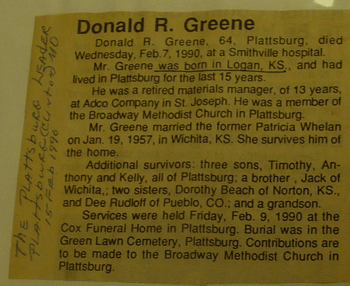 Donald R. Greene
Donald R. Greene, 64, Plattsburg, died
Wednesday, Feb.7, 1990, at a Smithville hospital.
Mr. Greene was born in Logan, KS., and had
lived in Plattsburg for the last 15 years.
He was a retired materials manager, of 13 years,
at Adco Company in St. Joseph. He was a member of
the Broadway Methodist Church in Plattsburg.
Mr. Greene married the former Patricia Whelan
on Jan. 19, 1957, in Wichita, KS. She survives him of
the home.
Additional survivors: three sons, Timothy, An-
thony and Kelly, all of Plattsburg; a brother , Jack of
Wichita,; two sisters, Dorothy Beach of Norton, KS.,
and Dee Rudloff of Pueblo, CO.; and a grandson.
Services were held Friday, Feb. 9, 1990 at the
Cox Funeral Home in Plattsburg. Burial was in the
Green Lawn Cemetery, Plattsburg. Contributions are
to be made to the Broadway Methodist Church in
Plattsburg.
THE PLATTSBURG LEADER
PLATTSBURG (Clinton) MO
15 FEB 1990